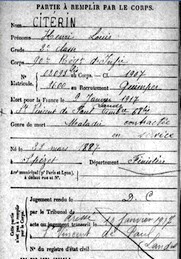 PARTIE À REMPLIR PAR LE CORPS.
Nom CITERIN
Prénoms Henri Louis
Grade 2e classe
Corps
N° au Corps. — Cl. 1907
Matricule. au Recrutement Quimper
Mort pour la France le 2 Janvier 1917
à St Vincent de Paul
Genre de mort Maladie contractée
en service
Né le 28 mars 1887
à Spézet Département Finistère
Arr' municipal (p' Paris et Lyon),
à défaut rue et N°.
Jugement rendu le D. C
par le Tribunal de
acte ou jugement transcrit le Janvier
à St Vincent de Paul
Landes
N° du registre d'état civil